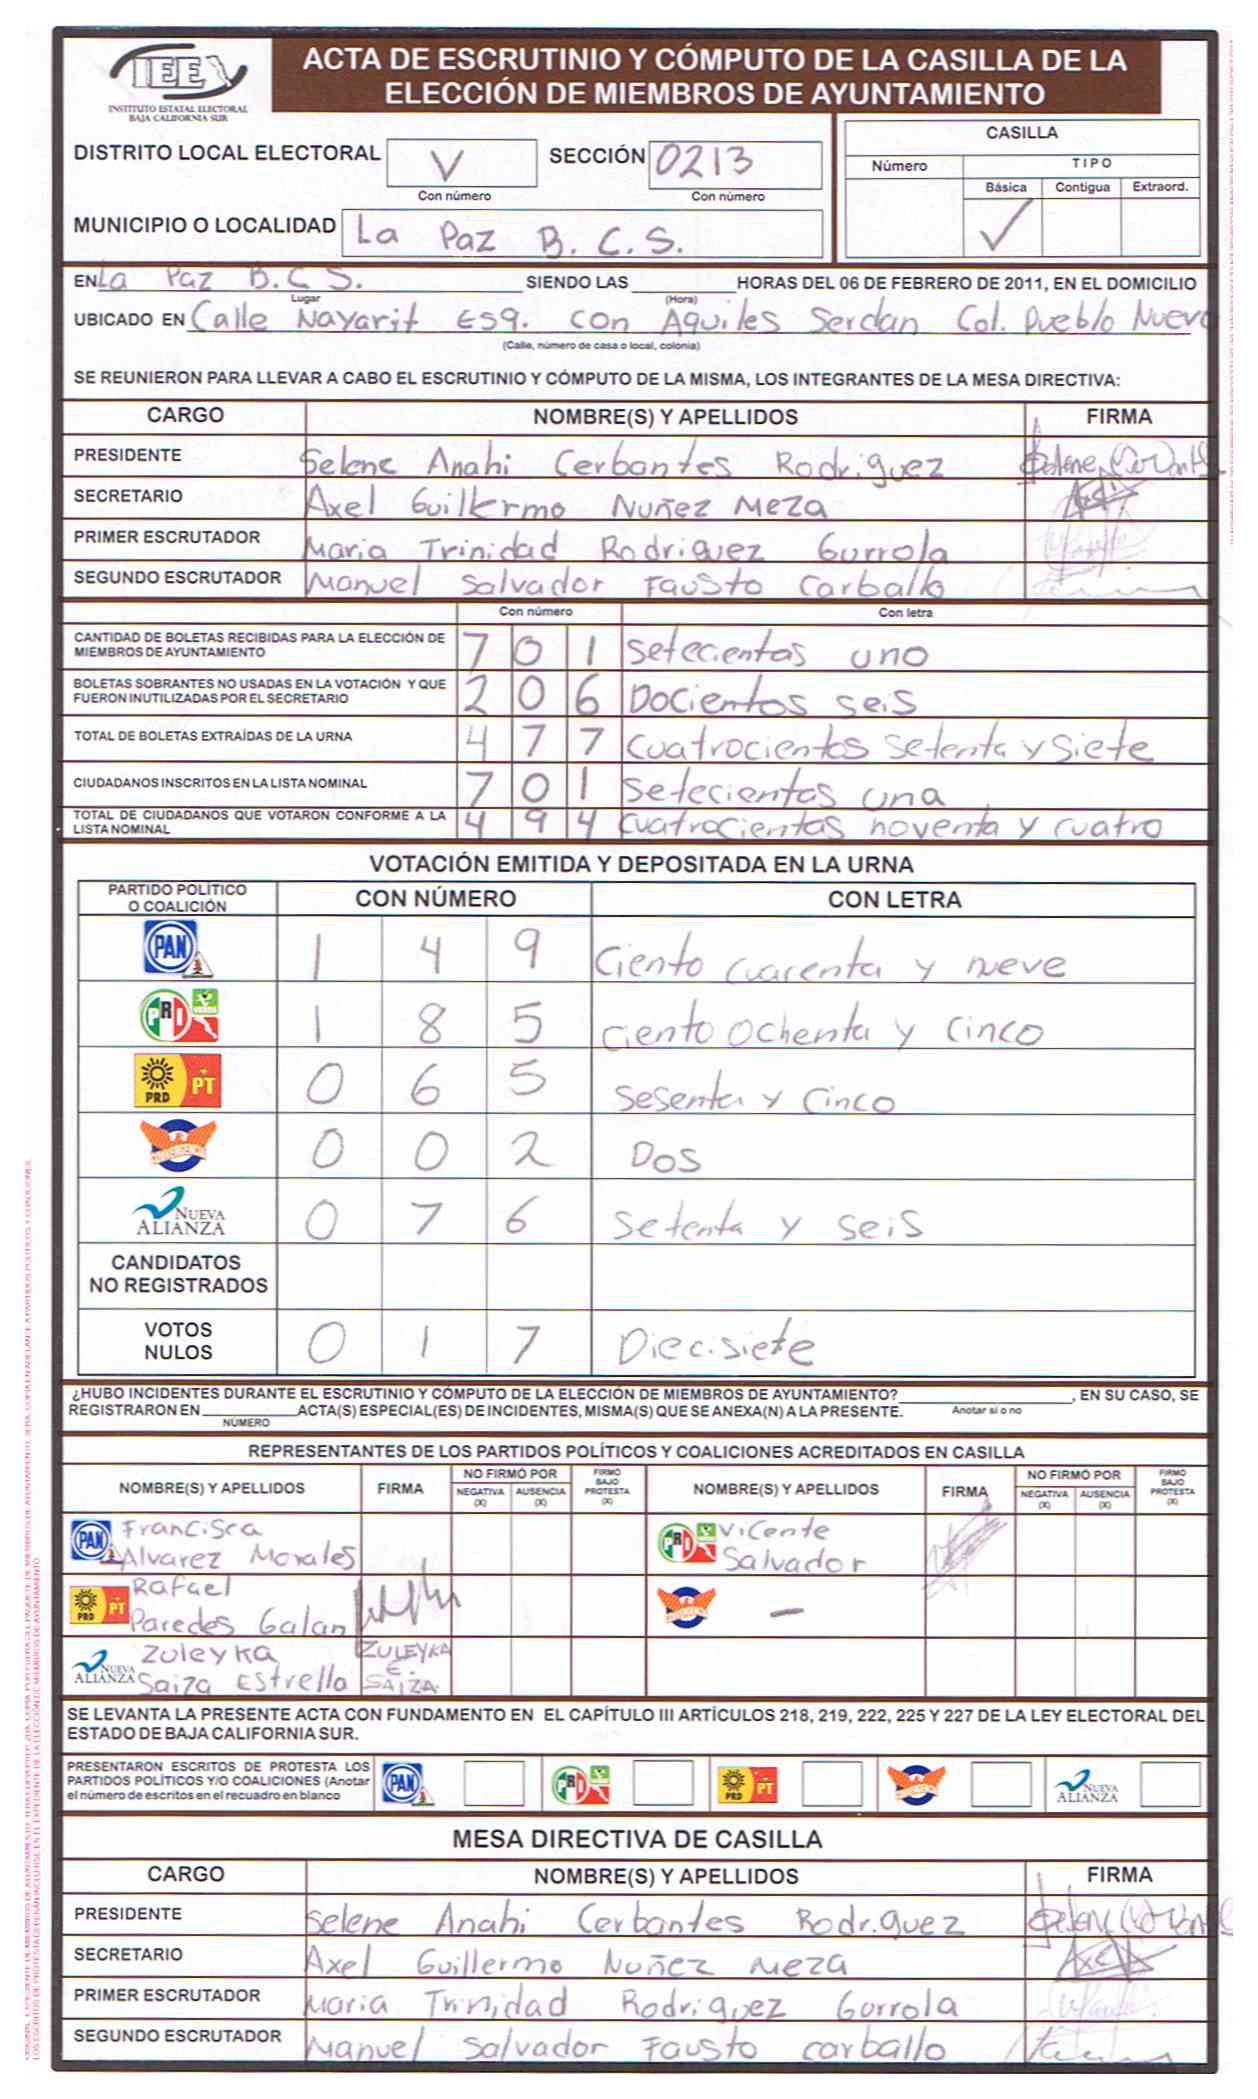 IEE
INSTITUTO ESTATAL ELECTORAL
BAJA CALIFORNIA SUR
ACTA DE ESCRUTINIO Y CÓMPUTO DE LA CASILLA DE LA
ELECCIÓN DE MIEMBROS DE AYUNTAMIENTO
DISTRITO LOCAL ELECTORAL V SECCIÓN 0213
Con número Con número
MUNICIPIO O LOCALIDAD La Paz B.C.S.
CASILLA
Número TIPO
Básica Contigua Extraord.
✓
EN La Paz B.C.S. SIENDO LAS HORAS DEL 06 DE FEBRERO DE 2011, EN EL DOMICILIO
Lugar (Hora)
UBICADO EN Calle Nayarit Esq. con Aquiles Serdan Col. Pueblo Nuevo
(Calle, número de casa o local, colonia)
SE REUNIERON PARA LLEVAR A CABO EL ESCRUTINIO Y CÓMPUTO DE LA MISMA, LOS INTEGRANTES DE LA MESA DIRECTIVA:
CARGO NOMBRE(S) Y APELLIDOS FIRMA
PRESIDENTE Selene Anahi Cerbantes Rodriguez
SECRETARIO Axel Guillermo Nuñez Meza
PRIMER ESCRUTADOR Maria Trinidad Rodriguez Gurrola
SEGUNDO ESCRUTADOR Manuel Salvador Fausto Carballo
Con número Con letra
CANTIDAD DE BOLETAS RECIBIDAS PARA LA ELECCIÓN DE
MIEMBROS DE AYUNTAMIENTO 7 0 1 Setecientos uno
BOLETAS SOBRANTES NO USADAS EN LA VOTACIÓN Y QUE
FUERON INUTILIZADAS POR EL SECRETARIO 2 0 6 Docientos seis
TOTAL DE BOLETAS EXTRAÍDAS DE LA URNA 4 7 7 Cuatrocientos setenta y siete
CIUDADANOS INSCRITOS EN LA LISTA NOMINAL 7 0 1 Setecientos una
TOTAL DE CIUDADANOS QUE VOTARON CONFORME A LA
LISTA NOMINAL 4 9 4 cuatrocientos noventa y cuatro
VOTACIÓN EMITIDA Y DEPOSITADA EN LA URNA
PARTIDO POLÍTICO
O COALICIÓN CON NÚMERO CON LETRA
PAN 1 4 9 Ciento cuarenta y nueve
PRI VERDE 1 8 5 Ciento Ochenta y Cinco
PRD PT 0 6 5 Sesenta y Cinco
CONVERGENCIA 0 0 2 Dos
NUEVA ALIANZA 0 7 6 Setenta y Seis
CANDIDATOS
NO REGISTRADOS
VOTOS
NULOS 0 1 7 Diecisiete
¿HUBO INCIDENTES DURANTE EL ESCRUTINIO Y CÓMPUTO DE LA ELECCIÓN DE MIEMBROS DE AYUNTAMIENTO? , EN SU CASO, SE
REGISTRARON EN ACTA(S) ESPECIAL(ES) DE INCIDENTES, MISMA(S) QUE SE ANEXA(N) A LA PRESENTE. Anotar si o no
NÚMERO
REPRESENTANTES DE LOS PARTIDOS POLÍTICOS Y COALICIONES ACREDITADOS EN CASILLA
NOMBRE(S) Y APELLIDOS FIRMA NO FIRMÓ POR NEGATIVA (X) AUSENCIA (X) FIRMÓ BAJO PROTESTA (X) NOMBRE(S) Y APELLIDOS FIRMA NO FIRMÓ POR NEGATIVA (X) AUSENCIA (X) FIRMÓ BAJO PROTESTA (X)
PAN Francisca
Alvarez Morales
PRI VERDE Vicente
Salvador
PRD PT Rafael
Paredes Galan
CONVERGENCIA -
NUEVA ALIANZA Zuleyka
Saiza Estrella
ZULEYKA
E.
SAIZA
SE LEVANTA LA PRESENTE ACTA CON FUNDAMENTO EN EL CAPÍTULO III ARTÍCULOS 218, 219, 222, 225 Y 227 DE LA LEY ELECTORAL DEL
ESTADO DE BAJA CALIFORNIA SUR.
PRESENTARON ESCRITOS DE PROTESTA LOS
PARTIDOS POLÍTICOS Y/O COALICIONES (Anotar
el número de escritos en el recuadro en blanco
PAN PRI VERDE PRD PT CONVERGENCIA NUEVA ALIANZA
MESA DIRECTIVA DE CASILLA
CARGO NOMBRE(S) Y APELLIDOS FIRMA
PRESIDENTE Selene Anahi Cerbantes Rodriguez
SECRETARIO Axel Guillermo Nuñez Meza
PRIMER ESCRUTADOR Maria Trinidad Rodriguez Gorrola
SEGUNDO ESCRUTADOR Manuel Salvador Fausto carballo